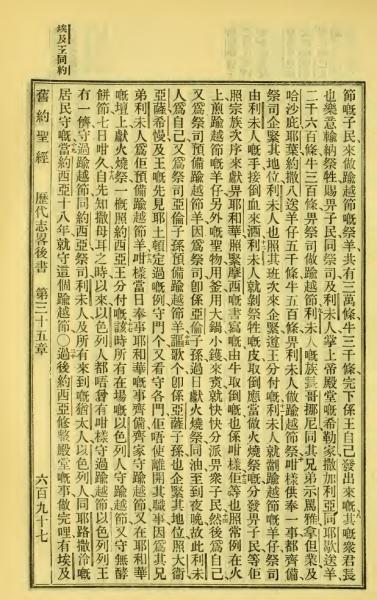 埃及王同約
節嘅子民來做踰越節嘅祭、羊共有三萬條牛三千條、完下係王自己發出來嘅、其嘅衆君長
也樂意輸納祭牲賜畀子民同祭司及利未人、掌上帝殿堂嘅希勒家撒加利亞同耶歇送羊
二千六百條牛三百條畀祭司做踰越節、利未人嘅族長哥挪尼同其兄弟示罵雅拿但業及
哈沙庇耶葉約撒八送羊仔五千條牛五百條畀利未人做踰越節祭、咁樣供奉一事都齊備、
祭司企緊其地位利未人也照其班次來企緊遵王分付嘅、利未人就劏踰越節嘅羊仔祭司
由利未人嘅手接倒血來洒利未人就剝祭牲嘅皮、取倒應當做火燒祭嘅分發畀子民等佢
照宗族次序來獻畀耶和華照緊摩西嘅書寫嘅、由牛取倒嘅也係咁樣、佢等也照常例在火
上煎踰越節嘅羊仔另外嘅聖物用釜用大鍋小鑊來煑就快快分派畀衆子民、然後爲自己
又爲祭司預備踰越節羊因爲祭司卽係亞倫子孫過日獻火燒祭同油至到夜晚、故此利未
人爲自己又爲祭司亞倫子孫預備踰越節羊、謳歌个卽係亞薩子孫也企緊其地位照大衞
亞薩希幔及王嘅先見耶土頓定過嘅例、守門个又看守各門佢唔使離開其職事、因爲其兄
弟利未人爲佢預備踰越節羊、咁樣當日奉事耶和華嘅事齊備齊家守踰越節又在耶和華
嘅壇上獻火燒祭一概照約西亞王分付嘅、該時所有在場嘅以色列人守踰越節又守無酵
餅節七日咁久、自先知撒母耳之時以來以色列人都唔曾有咁樣守過踰越節以色列列王
有一儕守過踰越節同約西亞祭司利未人及所有來到嘅猶太人以色列人同耶路撒冷嘅
居民守嘅、當約西亞十八年就守這個踰越節、○過後約西亞修整殿堂嘅事做完哩有埃及
舊約聖經 歷代志畧後書 第三十五章 六百九十七